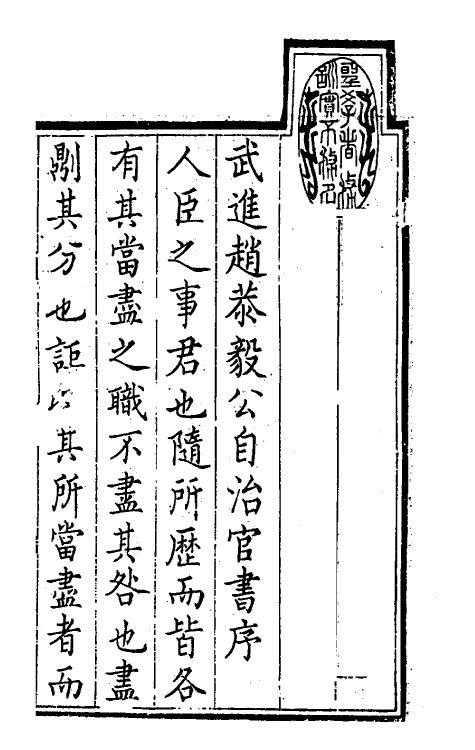 聖訓
學者務
實不務名
武進趙恭毅公自治官書序
人臣之事君也隨所歷而皆各
有其當盡之職不盡其咎也盡
𠟭其分也詎以其所當盡者而